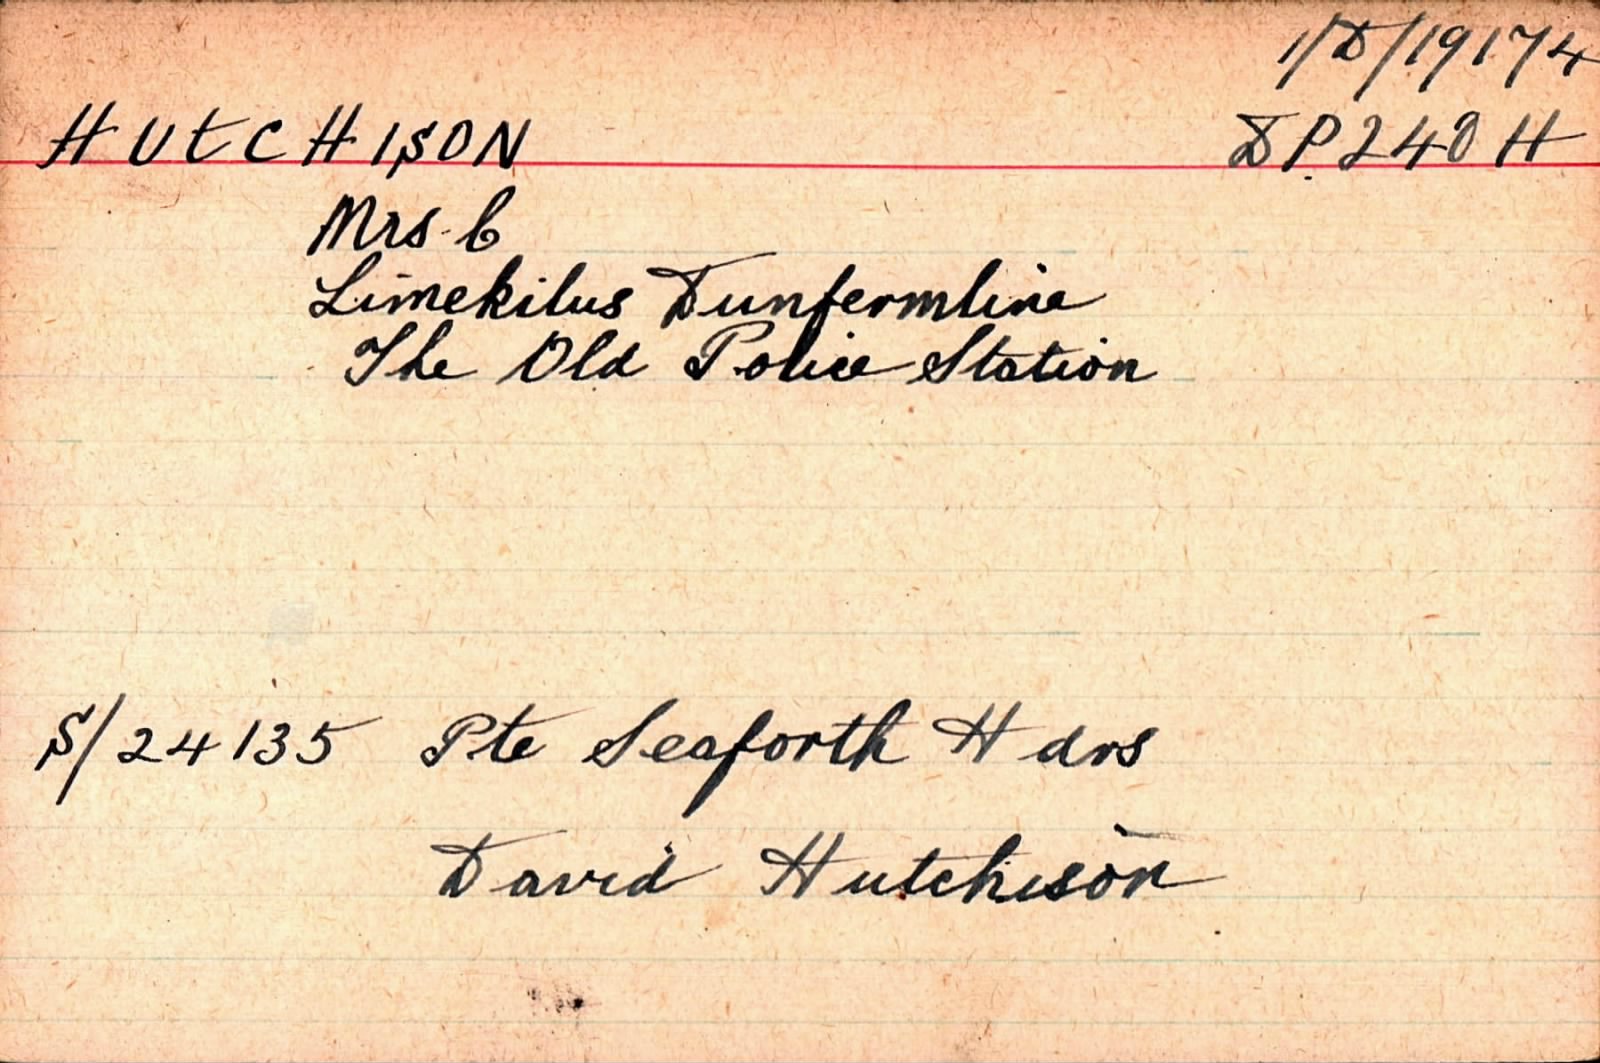 1/D/19174
HUTCHISON DP240H
Mrs. C
Limekilns Dunfermline
The Old Police Station
S/24135 Pte Seaforth Hdrs
David Hutchison